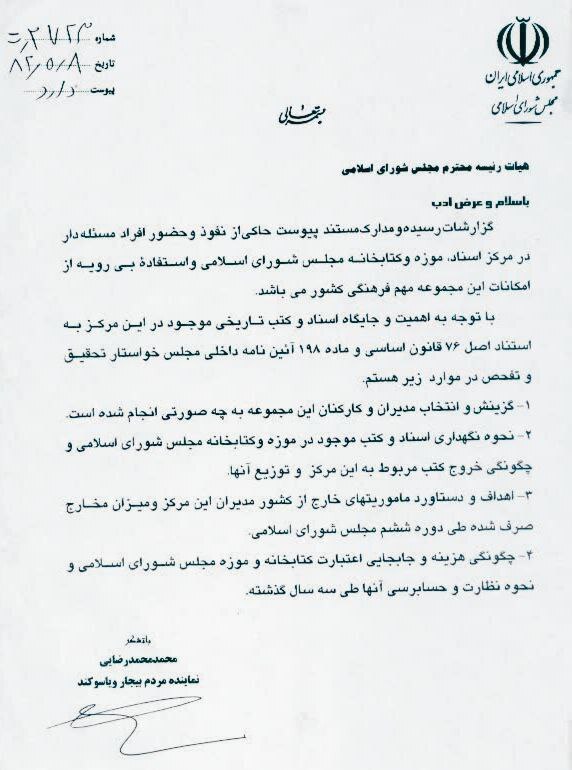 جمهوری اسلامی ایران
مجلس شورای اسلامی
شماره ۲۷۲۳
تاریخ ۸۲,۵,۸
پیوست دارد
بسمه تعالی
هیات رئیسه محترم مجلس شورای اسلامی
باسلام و عرض ادب
گزارشات رسیده و مدارک مستند پیوست حاکی از نفوذ و حضور افراد مسئله دار
در مرکز اسناد، موزه وکتابخانه مجلس شورای اسلامی واستفادهٔ بی رویه از
امکانات این مجموعه مهم فرهنگی کشور می باشد.
با توجه به اهمیت و جایگاه اسناد و کتب تاریخی موجود در این مرکز به
استناد اصل ۷۶ قانون اساسی و ماده ۱۹۸ آئین نامه داخلی مجلس خواستار تحقیق
و تفحص در موارد زیر هستم.
۱- گزینش و انتخاب مدیران و کارکنان این مجموعه به چه صورتی انجام شده است.
۲- نحوه نگهداری اسناد و کتب موجود در موزه وکتابخانه مجلس شورای اسلامی و
چگونگی خروج کتب مربوط به این مرکز و توزیع آنها.
۳- اهداف و دستاورد ماموریتهای خارج از کشور مدیران این مرکز ومیزان مخارج
صرف شده طی دوره ششم مجلس شورای اسلامی.
۴- چگونگی هزینه و جابجایی اعتبارت کتابخانه و موزه مجلس شورای اسلامی و
نحوه نظارت و حسابرسی آنها طی سه سال گذشته.
باتشکر
محمدمحمدرضایی
نماینده مردم بیجار ویاسوکند